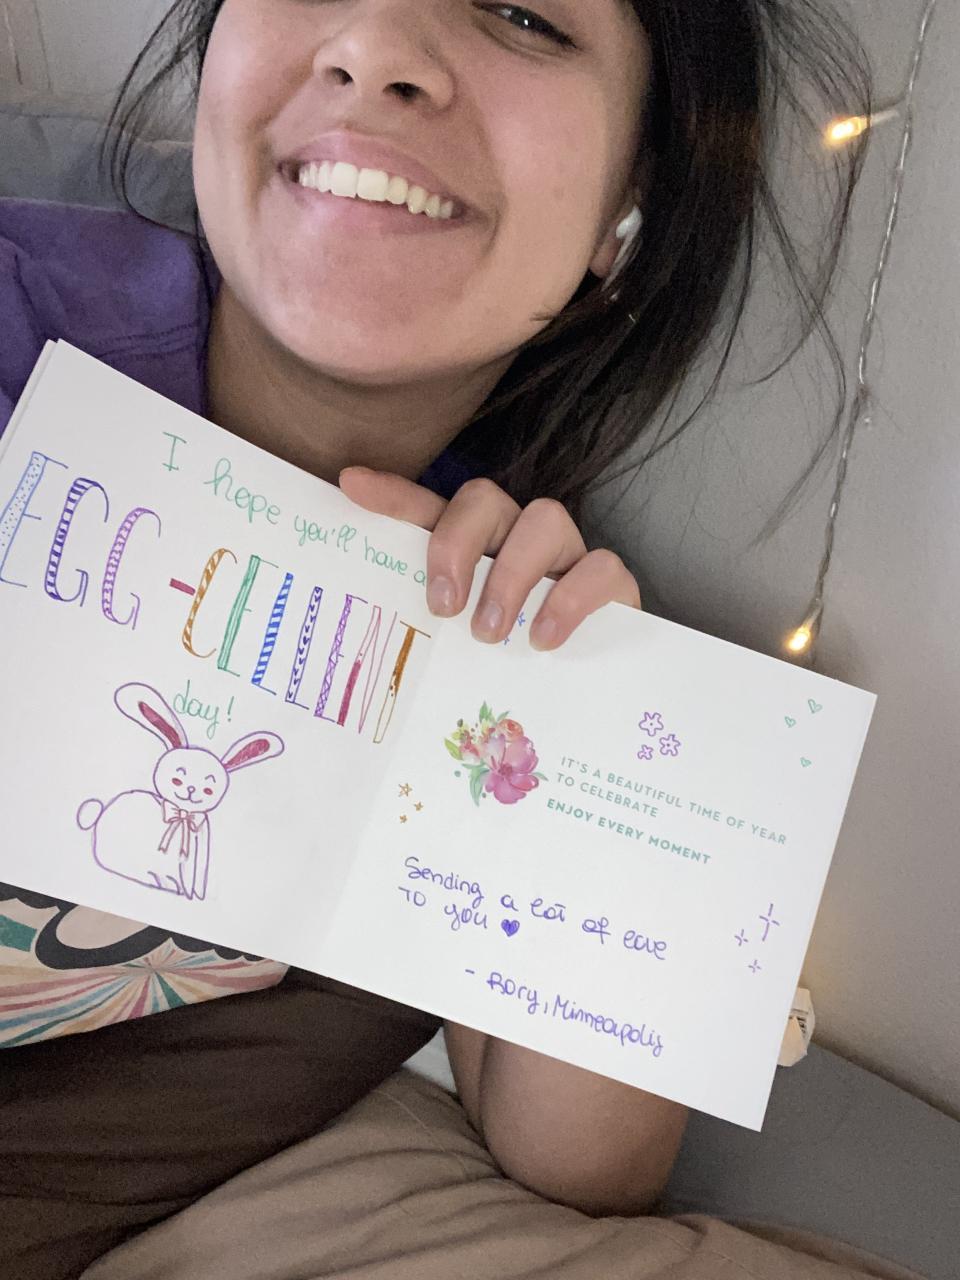 I hope you'll have a
EGG-CELLENT
day!
IT'S A BEAUTIFUL TIME OF YEAR
TO CELEBRATE
ENJOY EVERY MOMENT
Sending a lot of love
To you
- Rory, Minneapolis